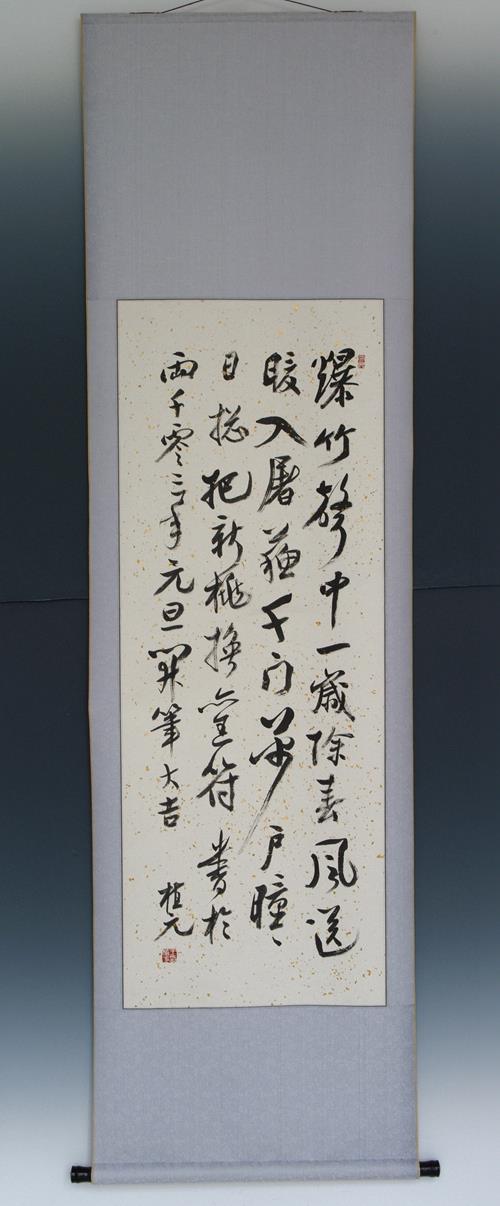 爆竹聲中一歲除春風送
暖入屠蘇千门萬户曈々
日總把新桃換舊符 書於
兩千零三年元旦開筆大吉 植元